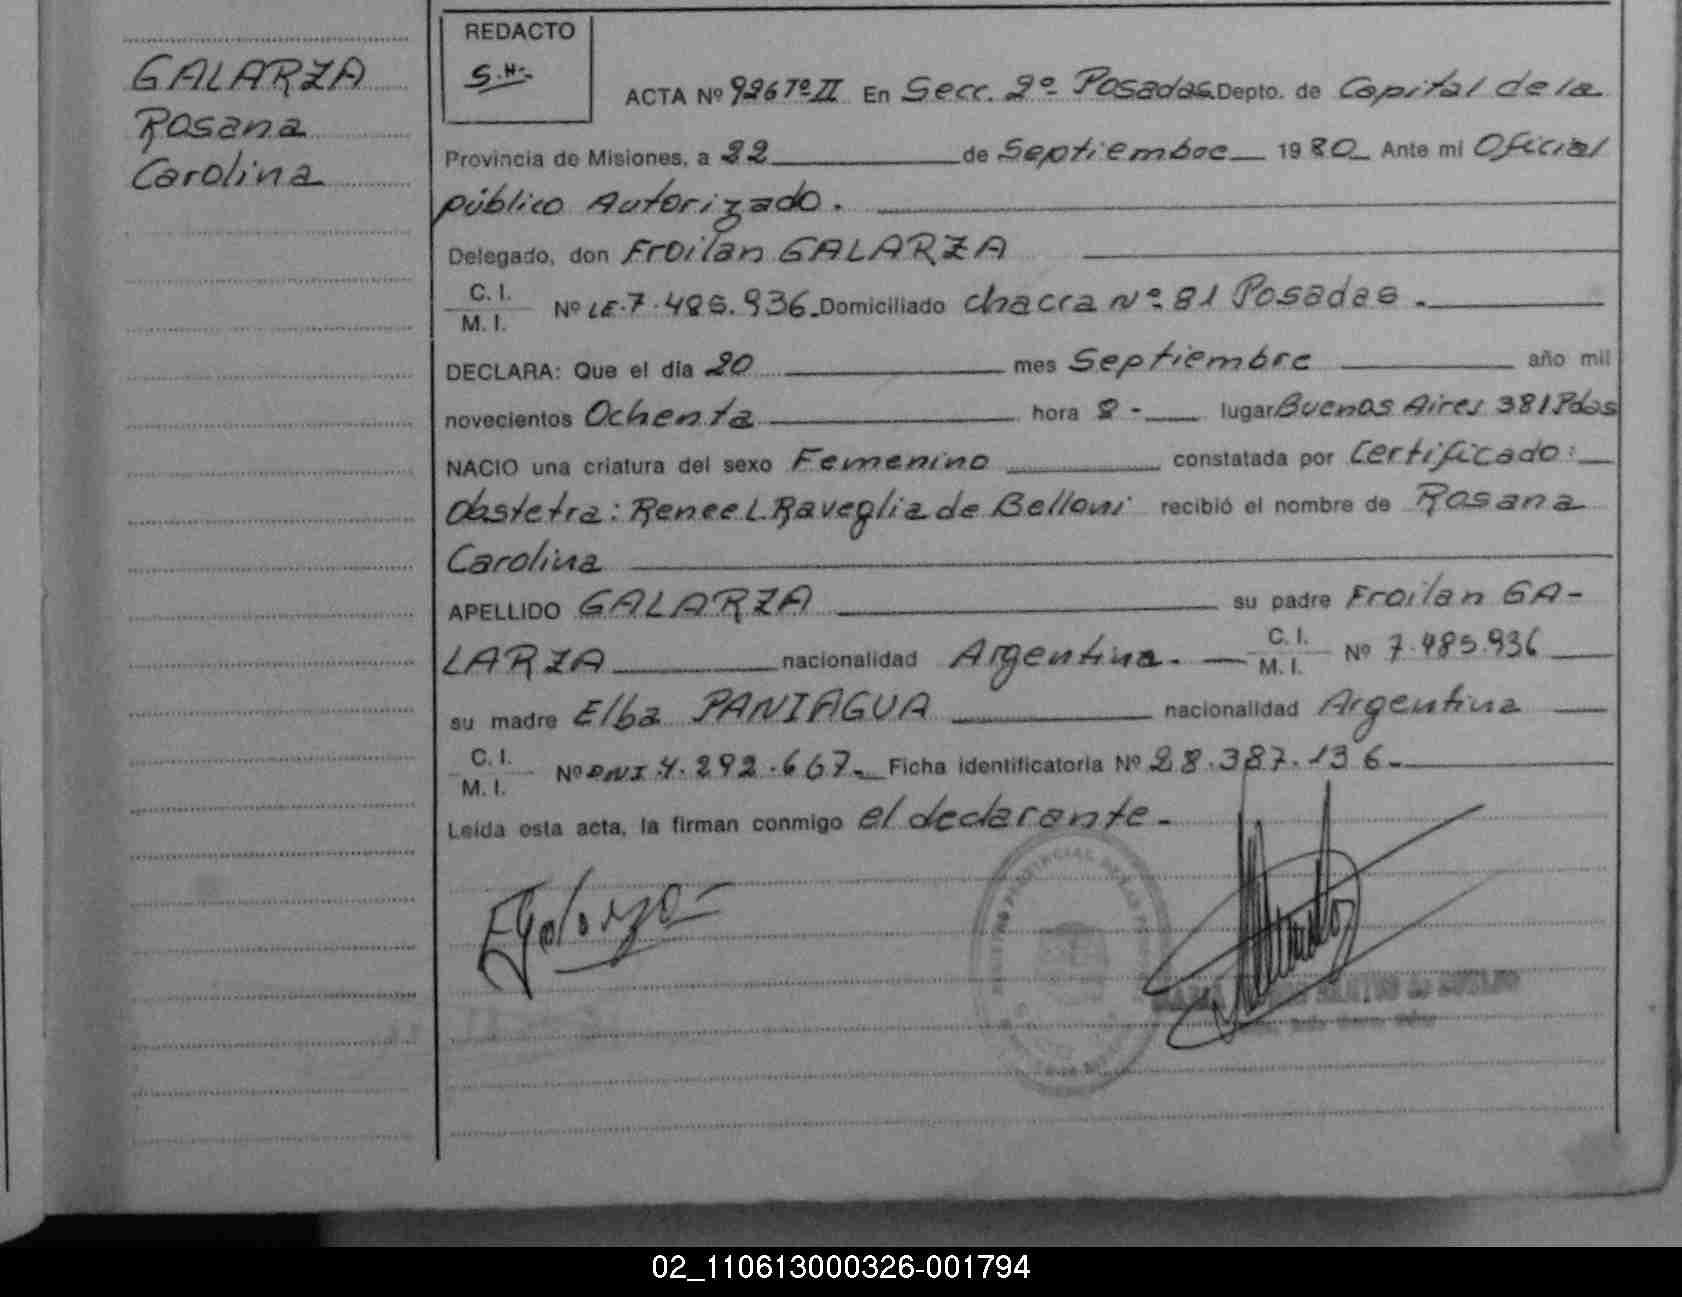 GALARZA
Rosana
Carolina
REDACTO
S.H.
ACTA Nº 926 Tº II En Secc. 2º Posadas Depto. de Capital de la
Provincia de Misiones, a 22 de Septiembre 1980 Ante mi Oficial
público Autorizado.
Delegado, don Froilan GALARZA
C. I.
M. I. Nº LE. 7.485.936 Domiciliado chacra Nº 81 Posadas.
DECLARA: Que el día 20 mes Septiembre año mil
novecientos Ochenta hora 8 - lugar Buenos Aires 381 Pdas
NACIO una criatura del sexo Femenino constatada por Certificado:
Obstetra: Renee L. Raveglia de Belloni recibió el nombre de Rosana
Carolina
APELLIDO GALARZA su padre Froilan GA-
LARZA nacionalidad Argentina. C. I. M. I. Nº 7.485.936
su madre Elba PANIAGUA nacionalidad Argentina
C. I.
M. I. Nº DNI 4.292.667. Ficha identificatoria Nº 28.387.136.
Leída esta acta, la firman conmigo el declarante.
02_110613000326-001794